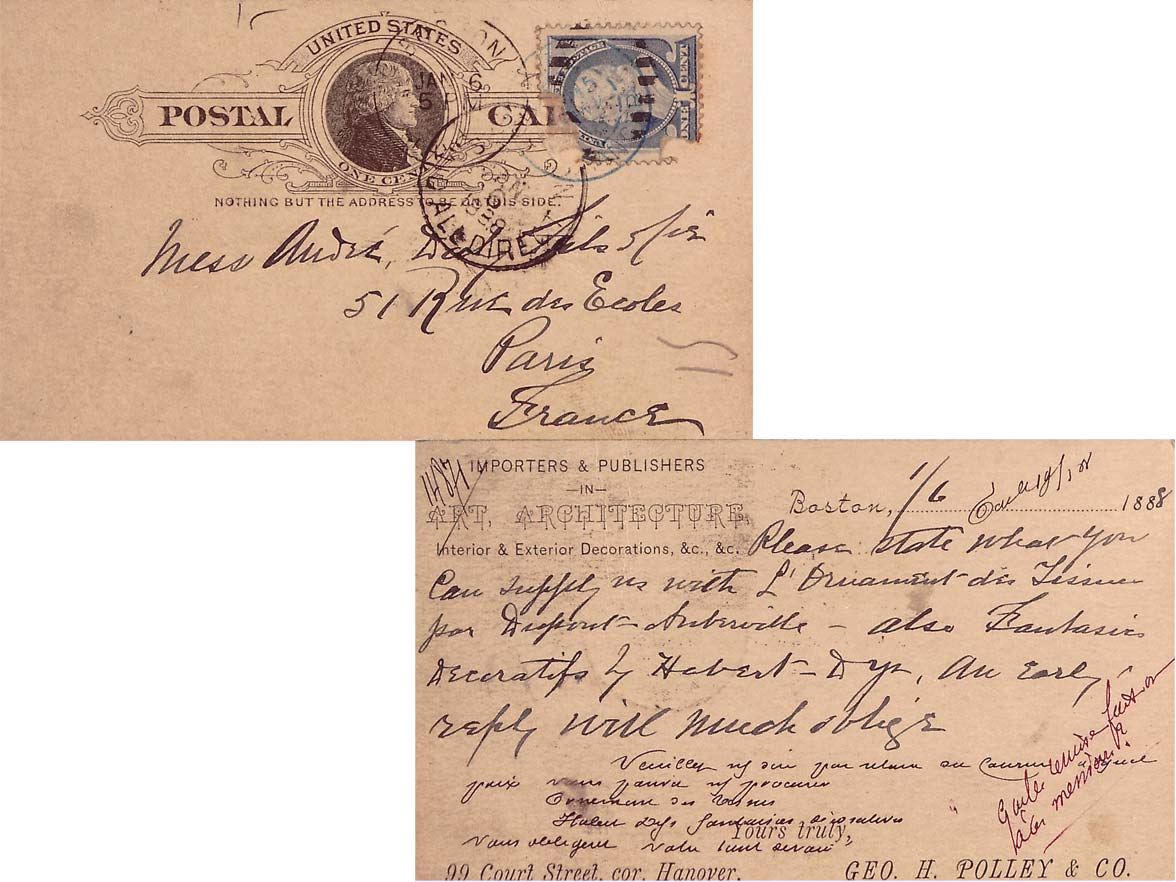 UNITED STATES
POSTAL CAR
ONE CENT
NOTHING BUT THE ADDRESS TO BE ON THIS SIDE.
JAN 6
5 PM
ONE CENT
Mess André, Fils & Cie
51 Rue des Ecoles
Paris
France
11871
IMPORTERS & PUBLISHERS
—IN—
ART, ARCHITECTURE,
Interior & Exterior Decorations, &c., &c.
Boston, 1/6 1888
Please state what you
Can supply us with L'Ornament des Tissus
par Dupont-Auberville – also Fantaisies
Decoratifs by Habert-Dys, An Early
reply will much oblige
Veuillez par retour du Courrier
prix vous pouvez procurer
Ornement des Tissus
Habert Dys fantaisies décoratives
Vous obligerez votre
Yours truly,
99 Court Street, cor. Hanover.
GEO. H. POLLEY & CO.